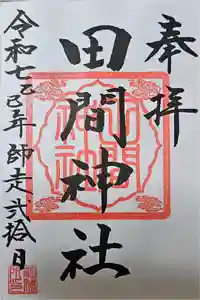 奉拝
田間神社
令和七乙巳年師走弐拾日